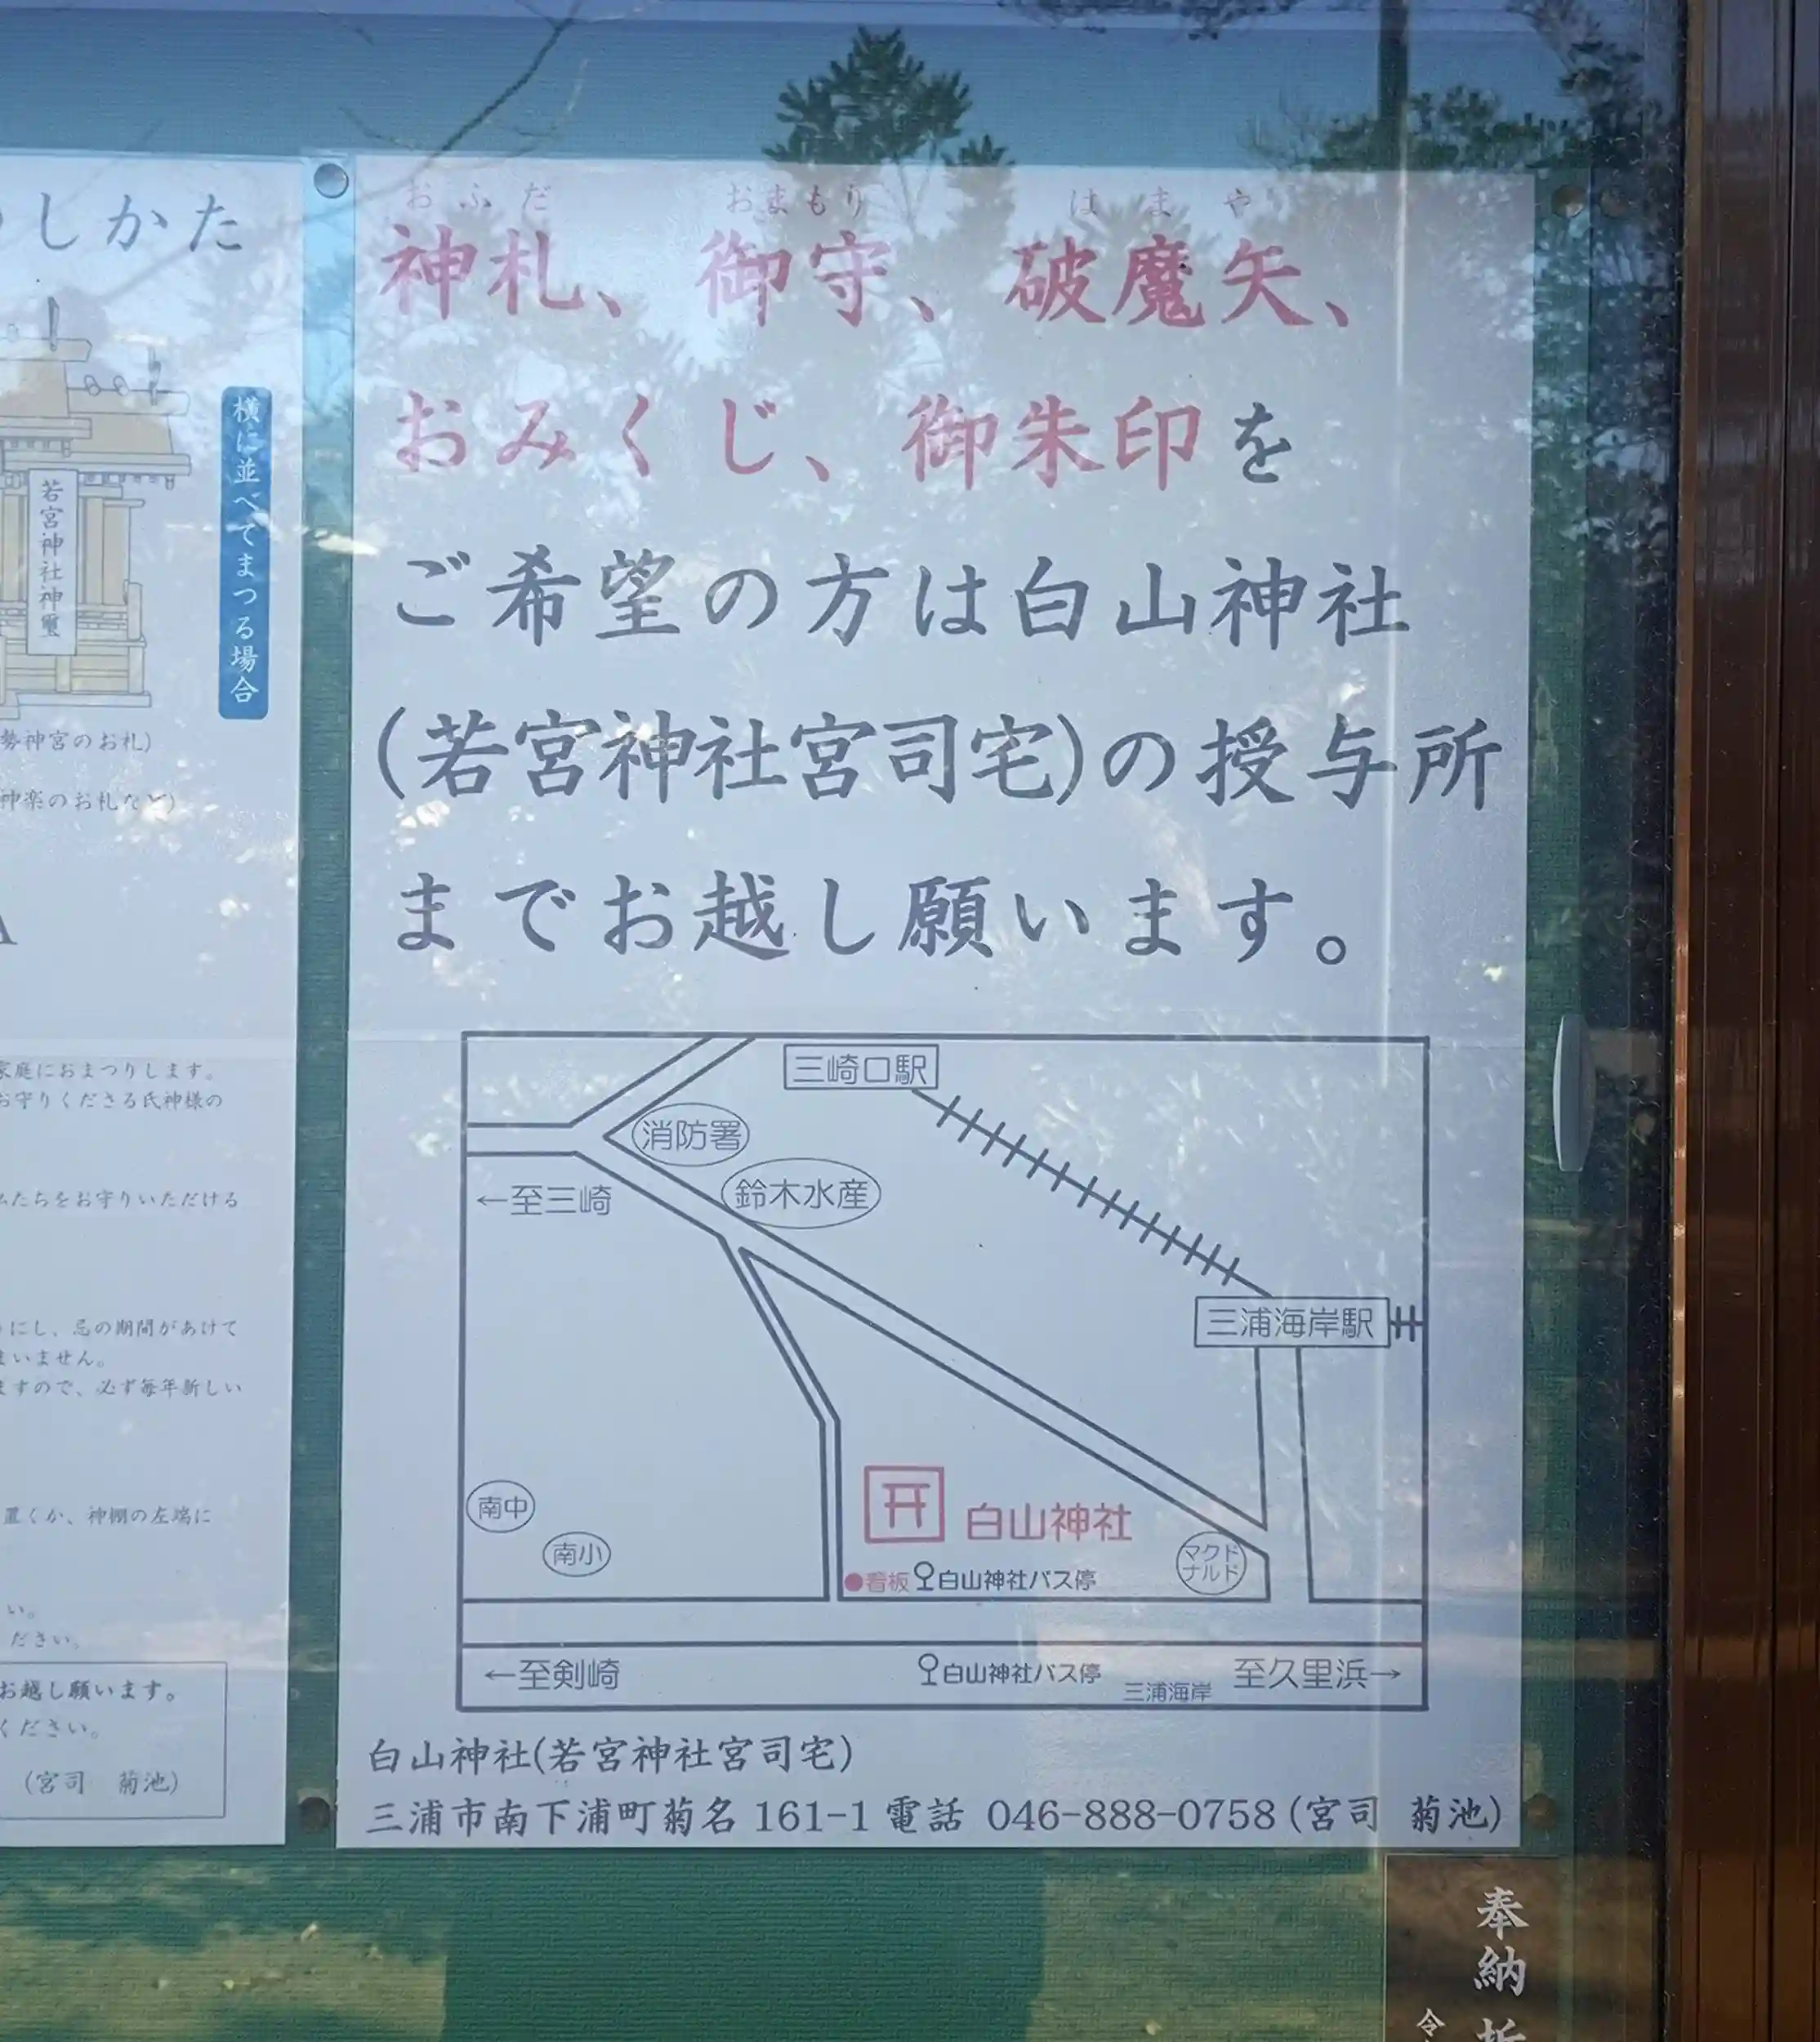 しかた
若宮神社神璽
横に並べてまつる場合
勢神宮のお札)
神楽のお札など)
家庭におまつりします。
お守りくださる氏神様の
たちをお守りいただける
にし、忌の期間があけて
まいません。
ますので、必ず毎年新しい
置くか、神棚の左端に
い。
ださい。
お越し願います。
ください。
(宮司 菊池)
おふだ おまもり はまや
神札、御守、破魔矢、
おみくじ、御朱印を
ご希望の方は白山神社
(若宮神社宮司宅)の授与所
までお越し願います。
三崎口駅
消防署
鈴木水産
←至三崎
三浦海岸駅
南中
南小
白山神社
マクド
ナルド
●看板 白山神社バス停
←至剣崎
白山神社バス停
三浦海岸
至久里浜→
白山神社(若宮神社宮司宅)
三浦市南下浦町菊名 161-1 電話 046-888-0758 (宮司 菊池)
奉納
令